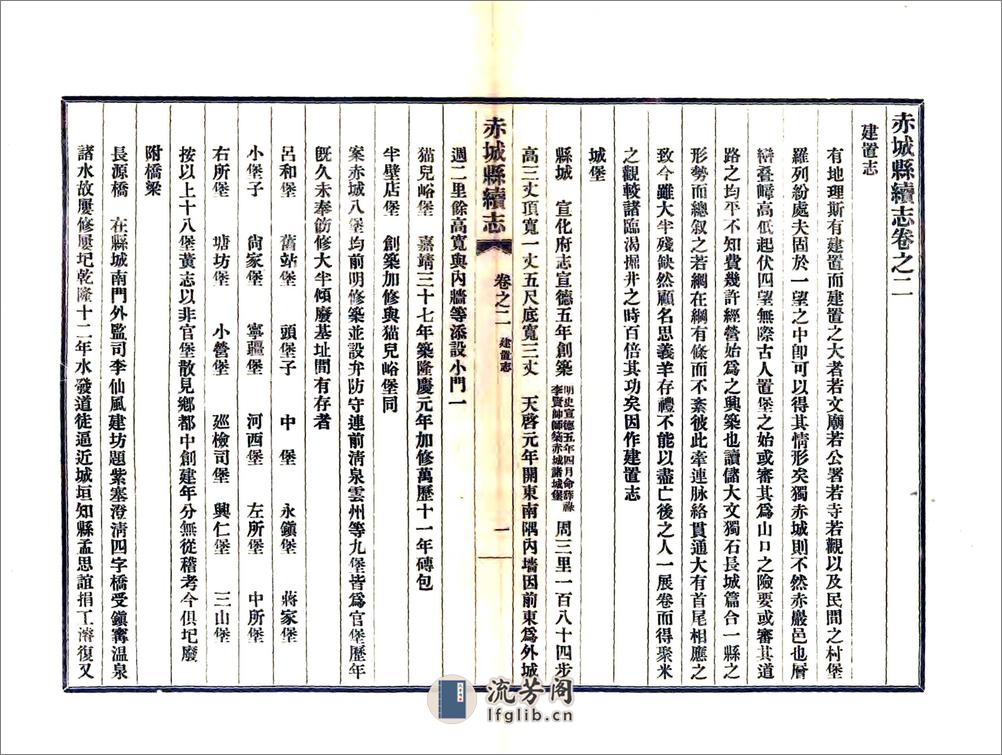 赤城縣續志卷之二
建置志
有地理斯有建置而建置之大者若文廟若公署若寺若觀以及民間之村堡
羅列紛處夫固於一望之中卽可以得其情形矣獨赤城則不然赤巖邑也層
巒叠嶂高低起伏四望無際古人置堡之始或審其爲山口之險要或審其道
路之均平不知費幾許經營始爲之興築也讀儲大文獨石長城篇合一縣之
形勢而總叙之若網在綱有條而不紊彼此牽連脉絡貫通大有首尾相應之
致今雖大半殘缺然顧名思義羊存禮不能以盡亡後之人一展卷而得聚米
之觀較諸臨渴掘井之時百倍其功矣因作建置志
城堡
縣城 宣化府志宣德五年創築 明史宣德五年四月命薛祿李賢帥師築赤城諸城堡 周三里一百八十四步
高三丈頂寬一丈五尺底寬三丈 天啓元年開東南隅內墻因前東爲外城
赤城縣續志 卷之二 建置志 一
週二里餘高寬與內牆等添設小門一
猫兒峪堡 嘉靖三十七年築隆慶元年加修萬歷十一年磚包
半壁店堡 創築加修與猫兒峪堡同
案赤城八堡均前明修築並設弁防守連前淸泉雲州等九堡皆爲官堡歷年
旣久未奉飭修大半傾廢基址間有存者
呂和堡 舊站堡 頭堡子 中堡 永鎭堡 蔣家堡
小堡子 尙家堡 寧疆堡 河西堡 左所堡 中所堡
右所堡 塘坊堡 小營堡 巡檢司堡 興仁堡 三山堡
按以上十八堡黃志以非官堡散見鄕都中創建年分無從稽考今俱圮廢
附橋梁
長源橋 在縣城南門外監司李仙風建坊題紫塞澄淸四字橋受鎭寗溫泉
諸水故屢修屢圮乾隆十二年水發道徒逼近城垣知縣孟思誼捐工濬復又
流芳阁
lfglib.cn